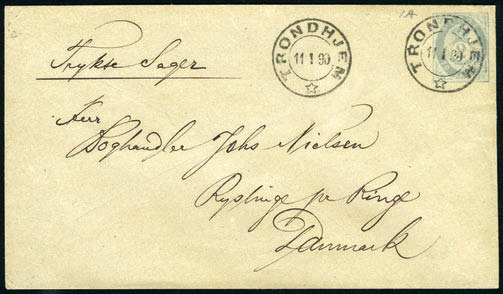 TRONDHJEM
11 1 90
TRONDHJEM
11 1 90
Trykse Sager
Herr
Boghandler Johs Nielsen
Ryslinge pr Ringe
Danmark